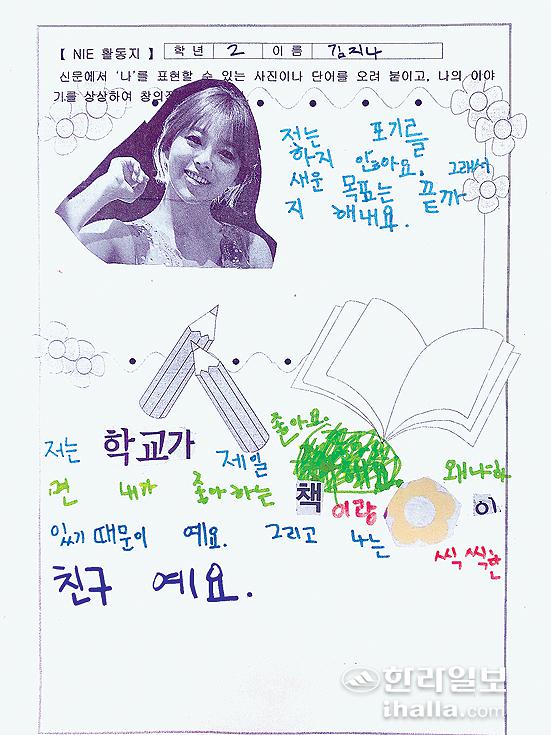 【 NIE 활동지 】 학 년 2 이 름 김지나
신문에서 '나'를 표현할 수 있는 사진이나 단어를 오려 붙이고, 나의 이야
기를 상상하여 창의적
저는 포기를
하지 안아요. 그래서
새운 목표는 끝까
지 해내요.
좋아요.
저는 학교가 제일 왜냐하
면 내가 좋아하는 책 이랑 이
있기 때문이 예요. 그리고 나는 씩씩한
친구 예요.
한라일보
ihalla.com